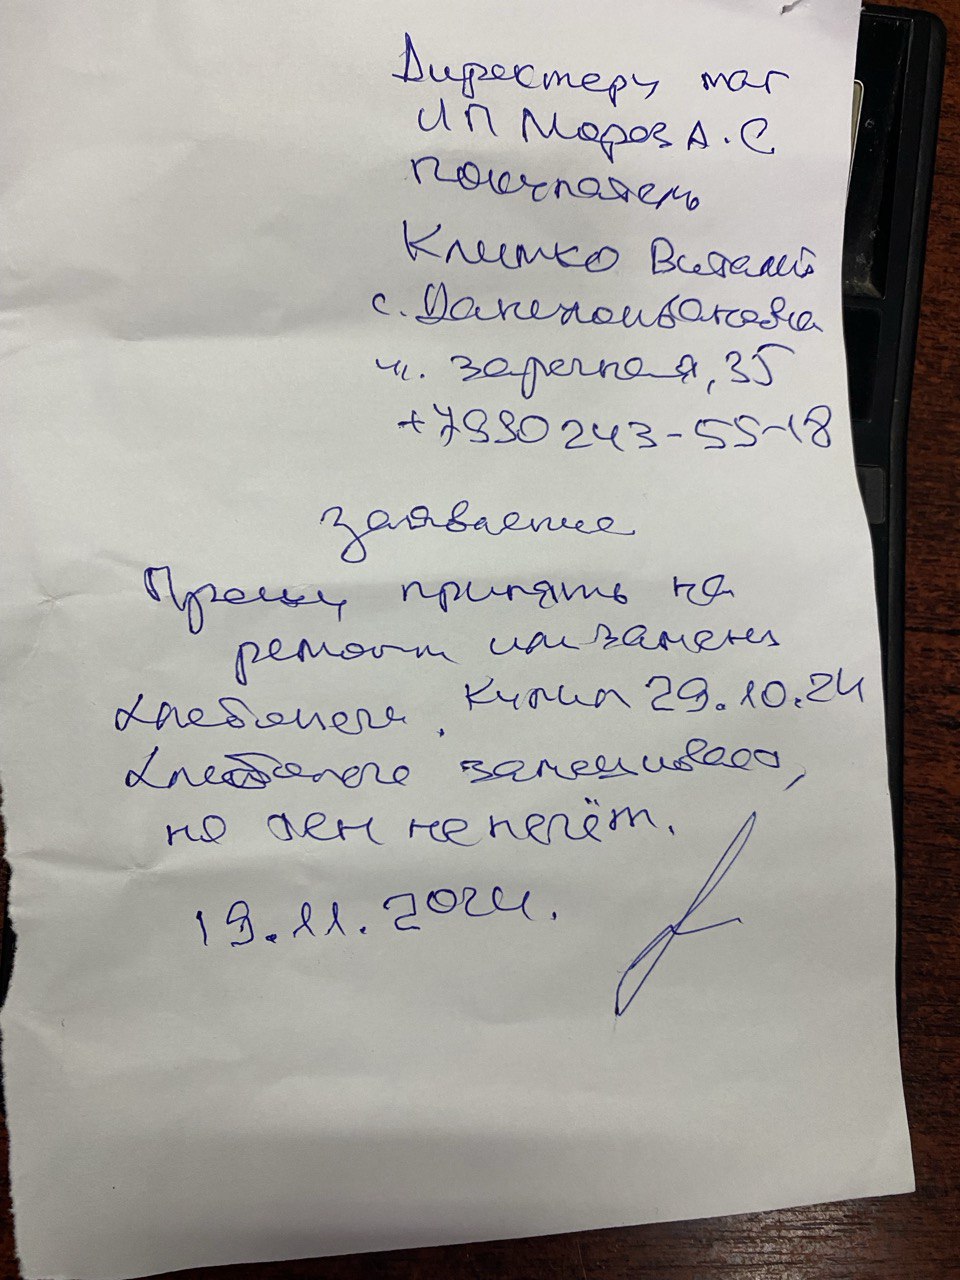 Директеру маг
ИП Мороз А.С
Покупатель
Климко Виталий
с. Данелоивановка
ул. Заречная, 35
+7990243-55-18
заявление
Прошу принять на
ремонт или замену
хлебопечь. Купил 29.10.24
хлебопечь замешивает,
но он не печёт.
19.11.2024.